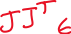 JJᵀ6